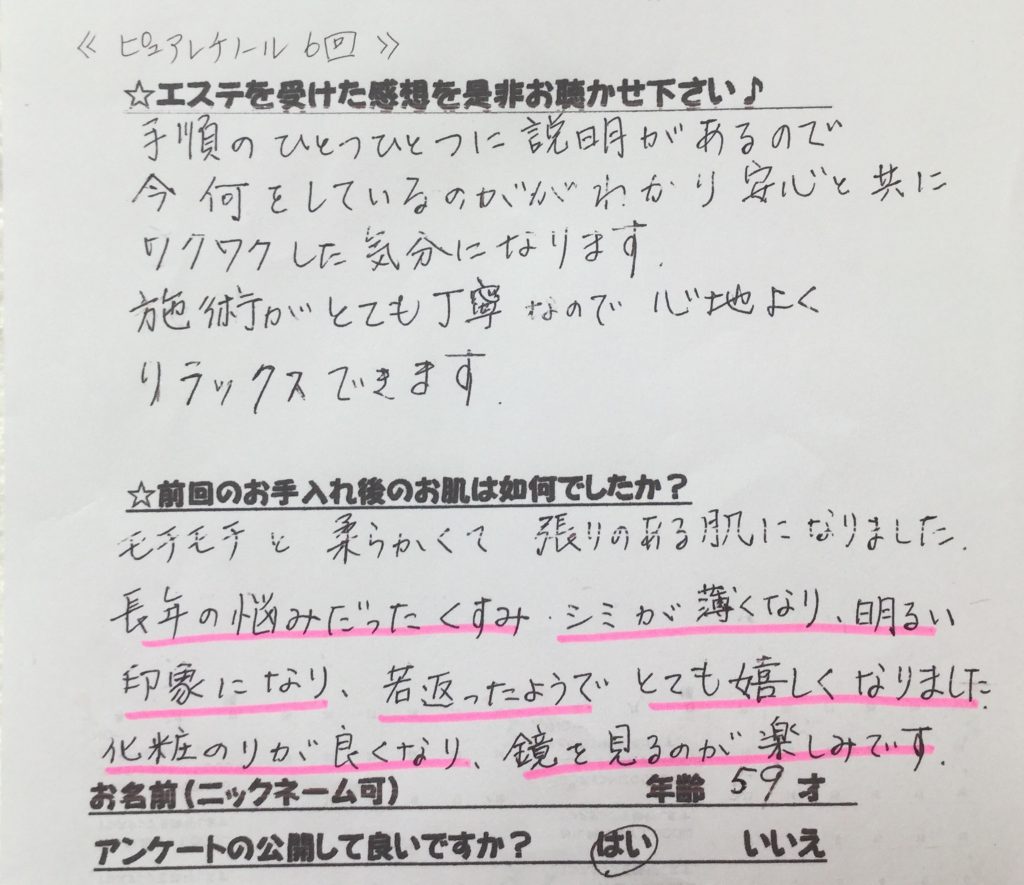 ≪ ピュアレチノール 6回 ≫
☆エステを受けた感想を是非お聴かせ下さい♪
手順のひとつひとつに説明があるので
今何をしているのかがわかり安心と共に
ワクワクした気分になります.
施術がとても丁寧なので心地よく
リラックスできます.
☆前回のお手入れ後のお肌は如何でしたか？
モチモチと柔らかくて張りのある肌になりました.
長年の悩みだったくすみ・シミが薄くなり、明るい
印象になり、若返ったようでとても嬉しくなりました.
化粧のりが良くなり、鏡を見るのが楽しみです.
お名前(ニックネーム可) 年齢 59 才
アンケートの公開して良いですか？ はい いいえ